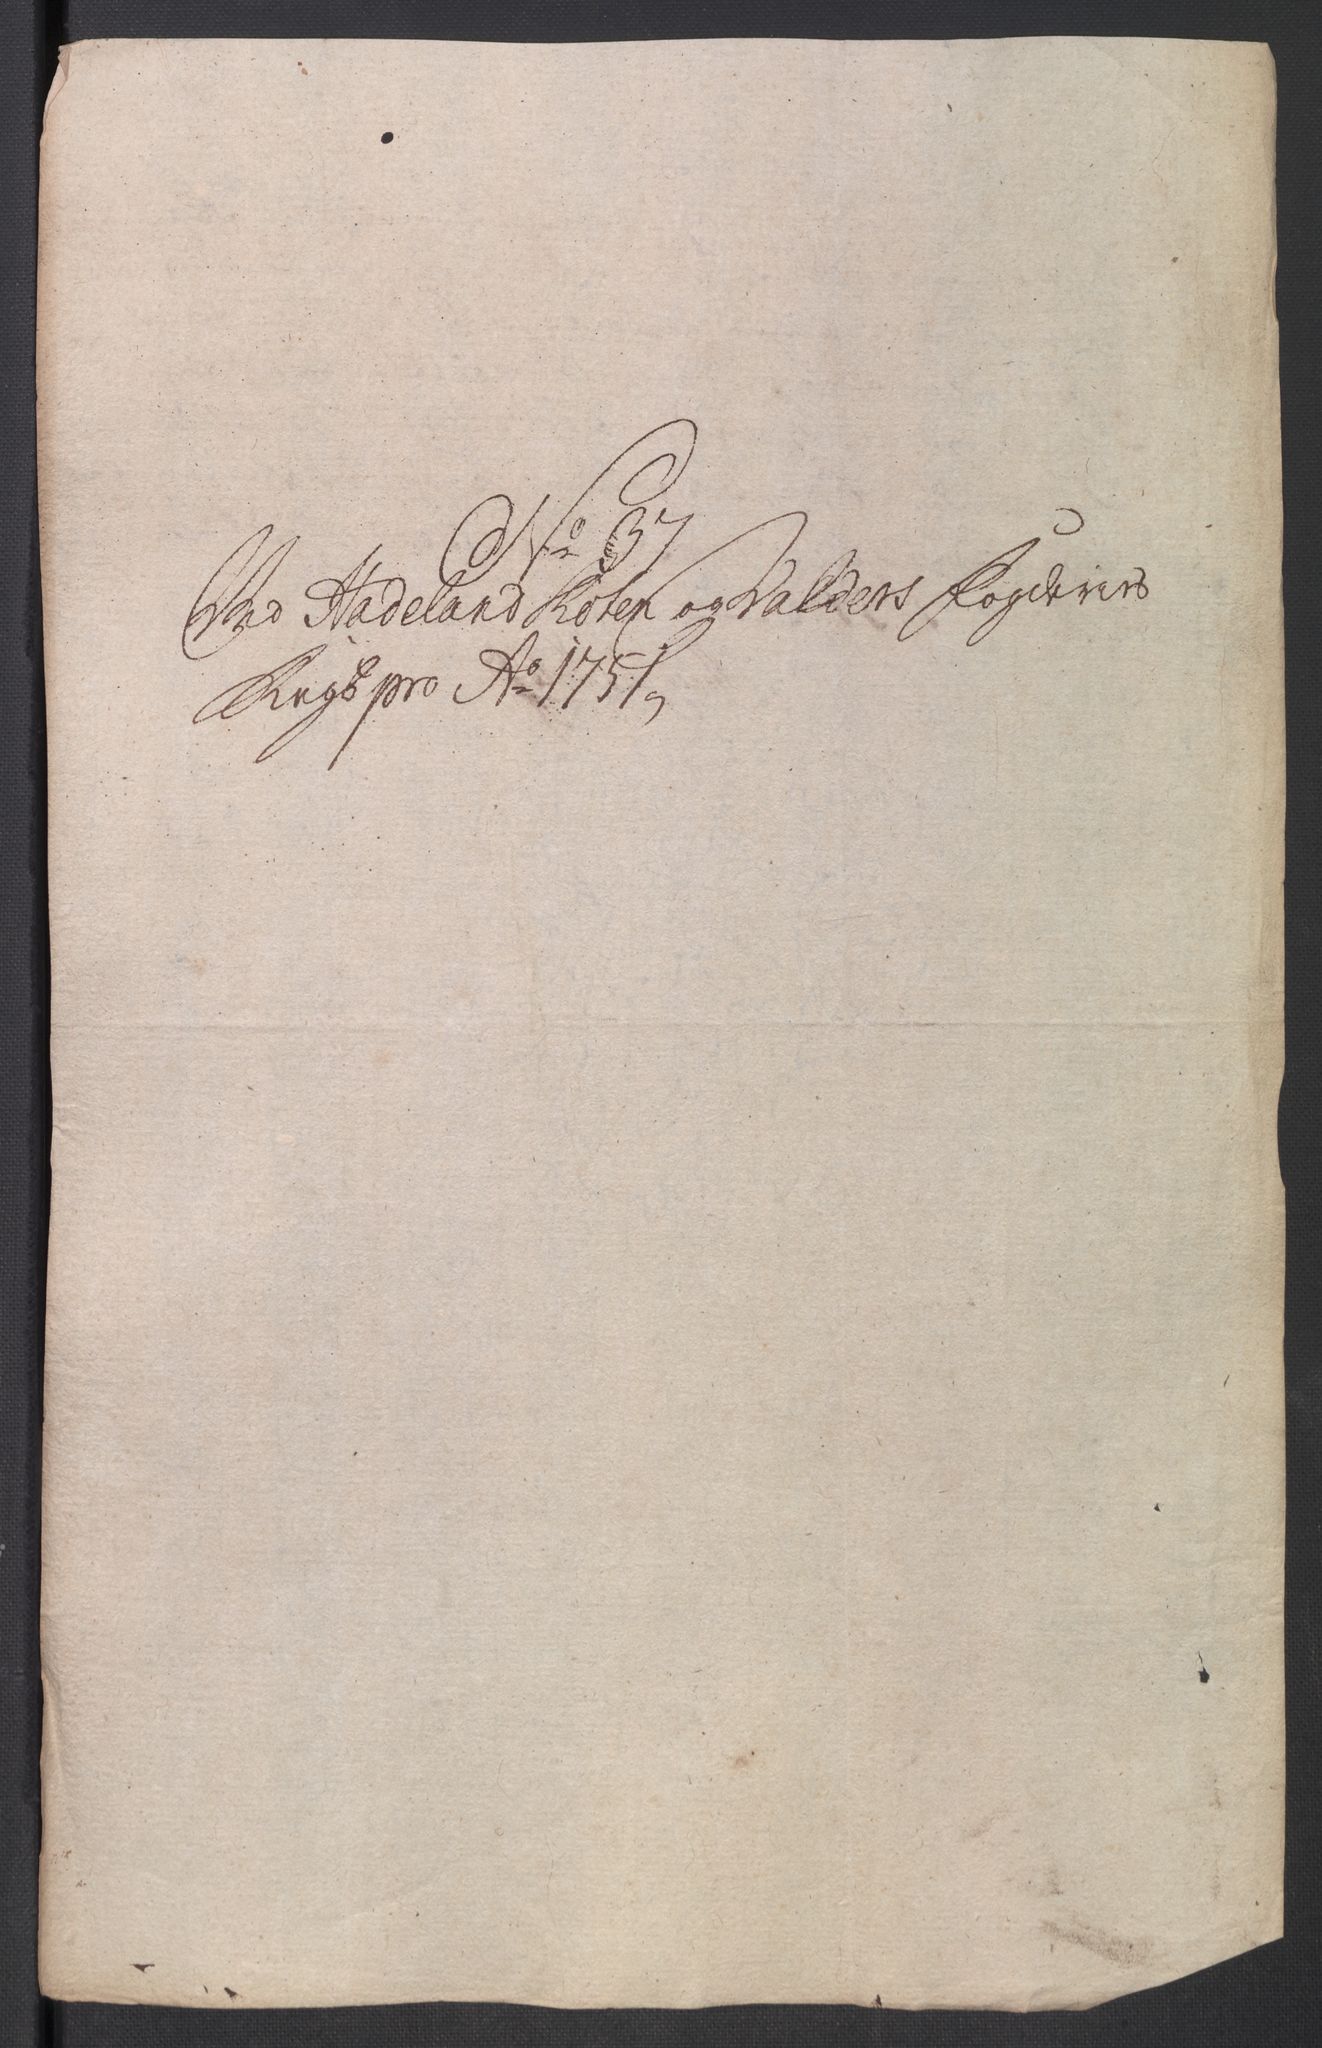 No 37
Ved Hadeland Toten og Valders Fogderies
Regsb pro Ao 1751,